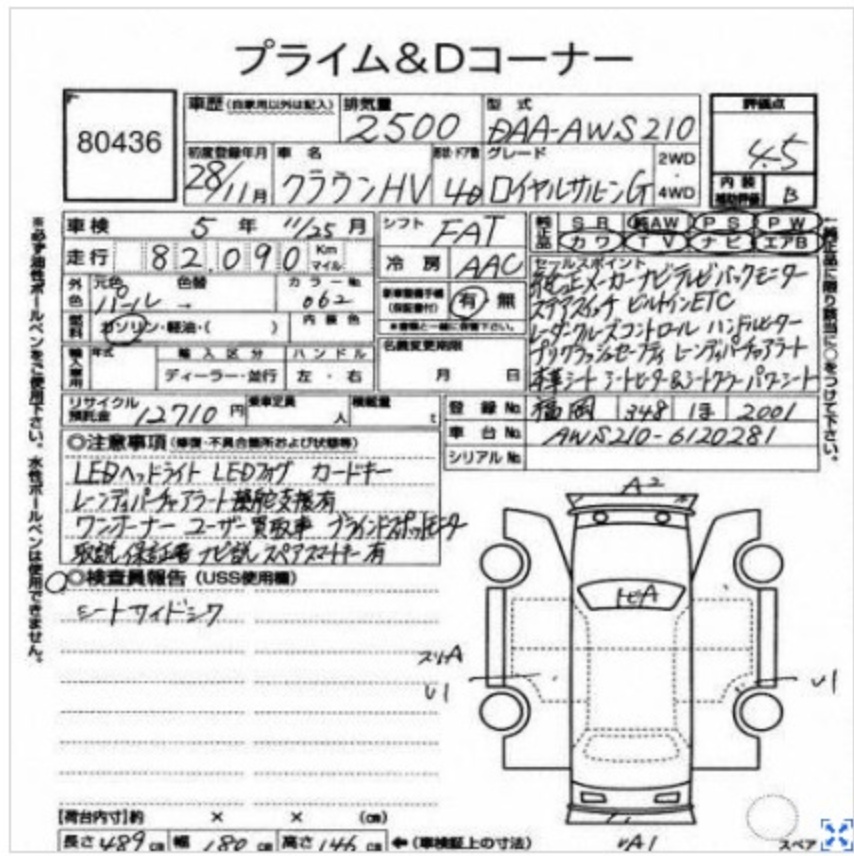 プライム&Dコーナー
80436
車歴(自家用以外は記入)
排気量 2500
型式 DAA-AWS210
評価点 4.5
初度登録年月 28/11月
車名 クラウンHV
形状・ドア数 4D
グレード ロイヤルサルーンG
2WD・4WD
内装補助評価 B
車検 5年 11/25月
シフト FAT
純正品 SR 純AW PS PW
カワ TV ナビ エアB
走行 82.090 Km マイル
冷房 AAC
セールスポイント
メーカーナビテレビバックモニター
ステアスイッチ ビルトインETC
レーダークルーズコントロール ハンドルヒーター
プリクラッシュセーフティ レーンディパーチャアラート
本革シート シートヒーター&シートクーラー パワーシート
外色 元色 パール → 色替
カラーNo. 062
新車整備手帳(保証書付) 有・無
※書類と一緒に保管下さい。
燃料 ガソリン・軽油・( )
内装色
名義変更期限 月 日
輸入車用 年式
輸入区分 ディーラー・並行
ハンドル 左・右
リサイクル預託金 12710円
乗車定員 人
積載量 t
登録No. 福岡 348 ほ 2001
車台No. AWS210-6120281
シリアルNo.
◎注意事項(修復・不具合箇所および状態等)
LEDヘッドライト LEDフォグ カードキー
レーンディパーチャアラート操舵支援有
ワンオーナー ユーザー買取車 ブラインドスポットモニター
取説 保証書 ナビ説 スペアスマートキー有
◎検査員報告(USS使用欄)
シートサイドシワ
A2
トビA
スリA
U1
U1
A1
スペア
【荷台内寸】約 × × (cm)
長さ 489cm 幅 180cm 高さ 146cm ←(車検証上の寸法)
※必ず油性ボールペンをご使用下さい。水性ボールペンは使用できません。
←純正品に限り該当に○をつけて下さい。